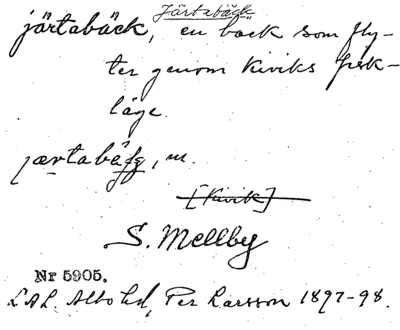 Järtabäck
järtabäck, en bäck som fly-
ter genom Kiviks fisk-
läge.
jærtabäfg, m.
[Kivik]
S. Mellby
Nr 5905.
L.A.L. Albo hd, Per Larsson 1897-98.